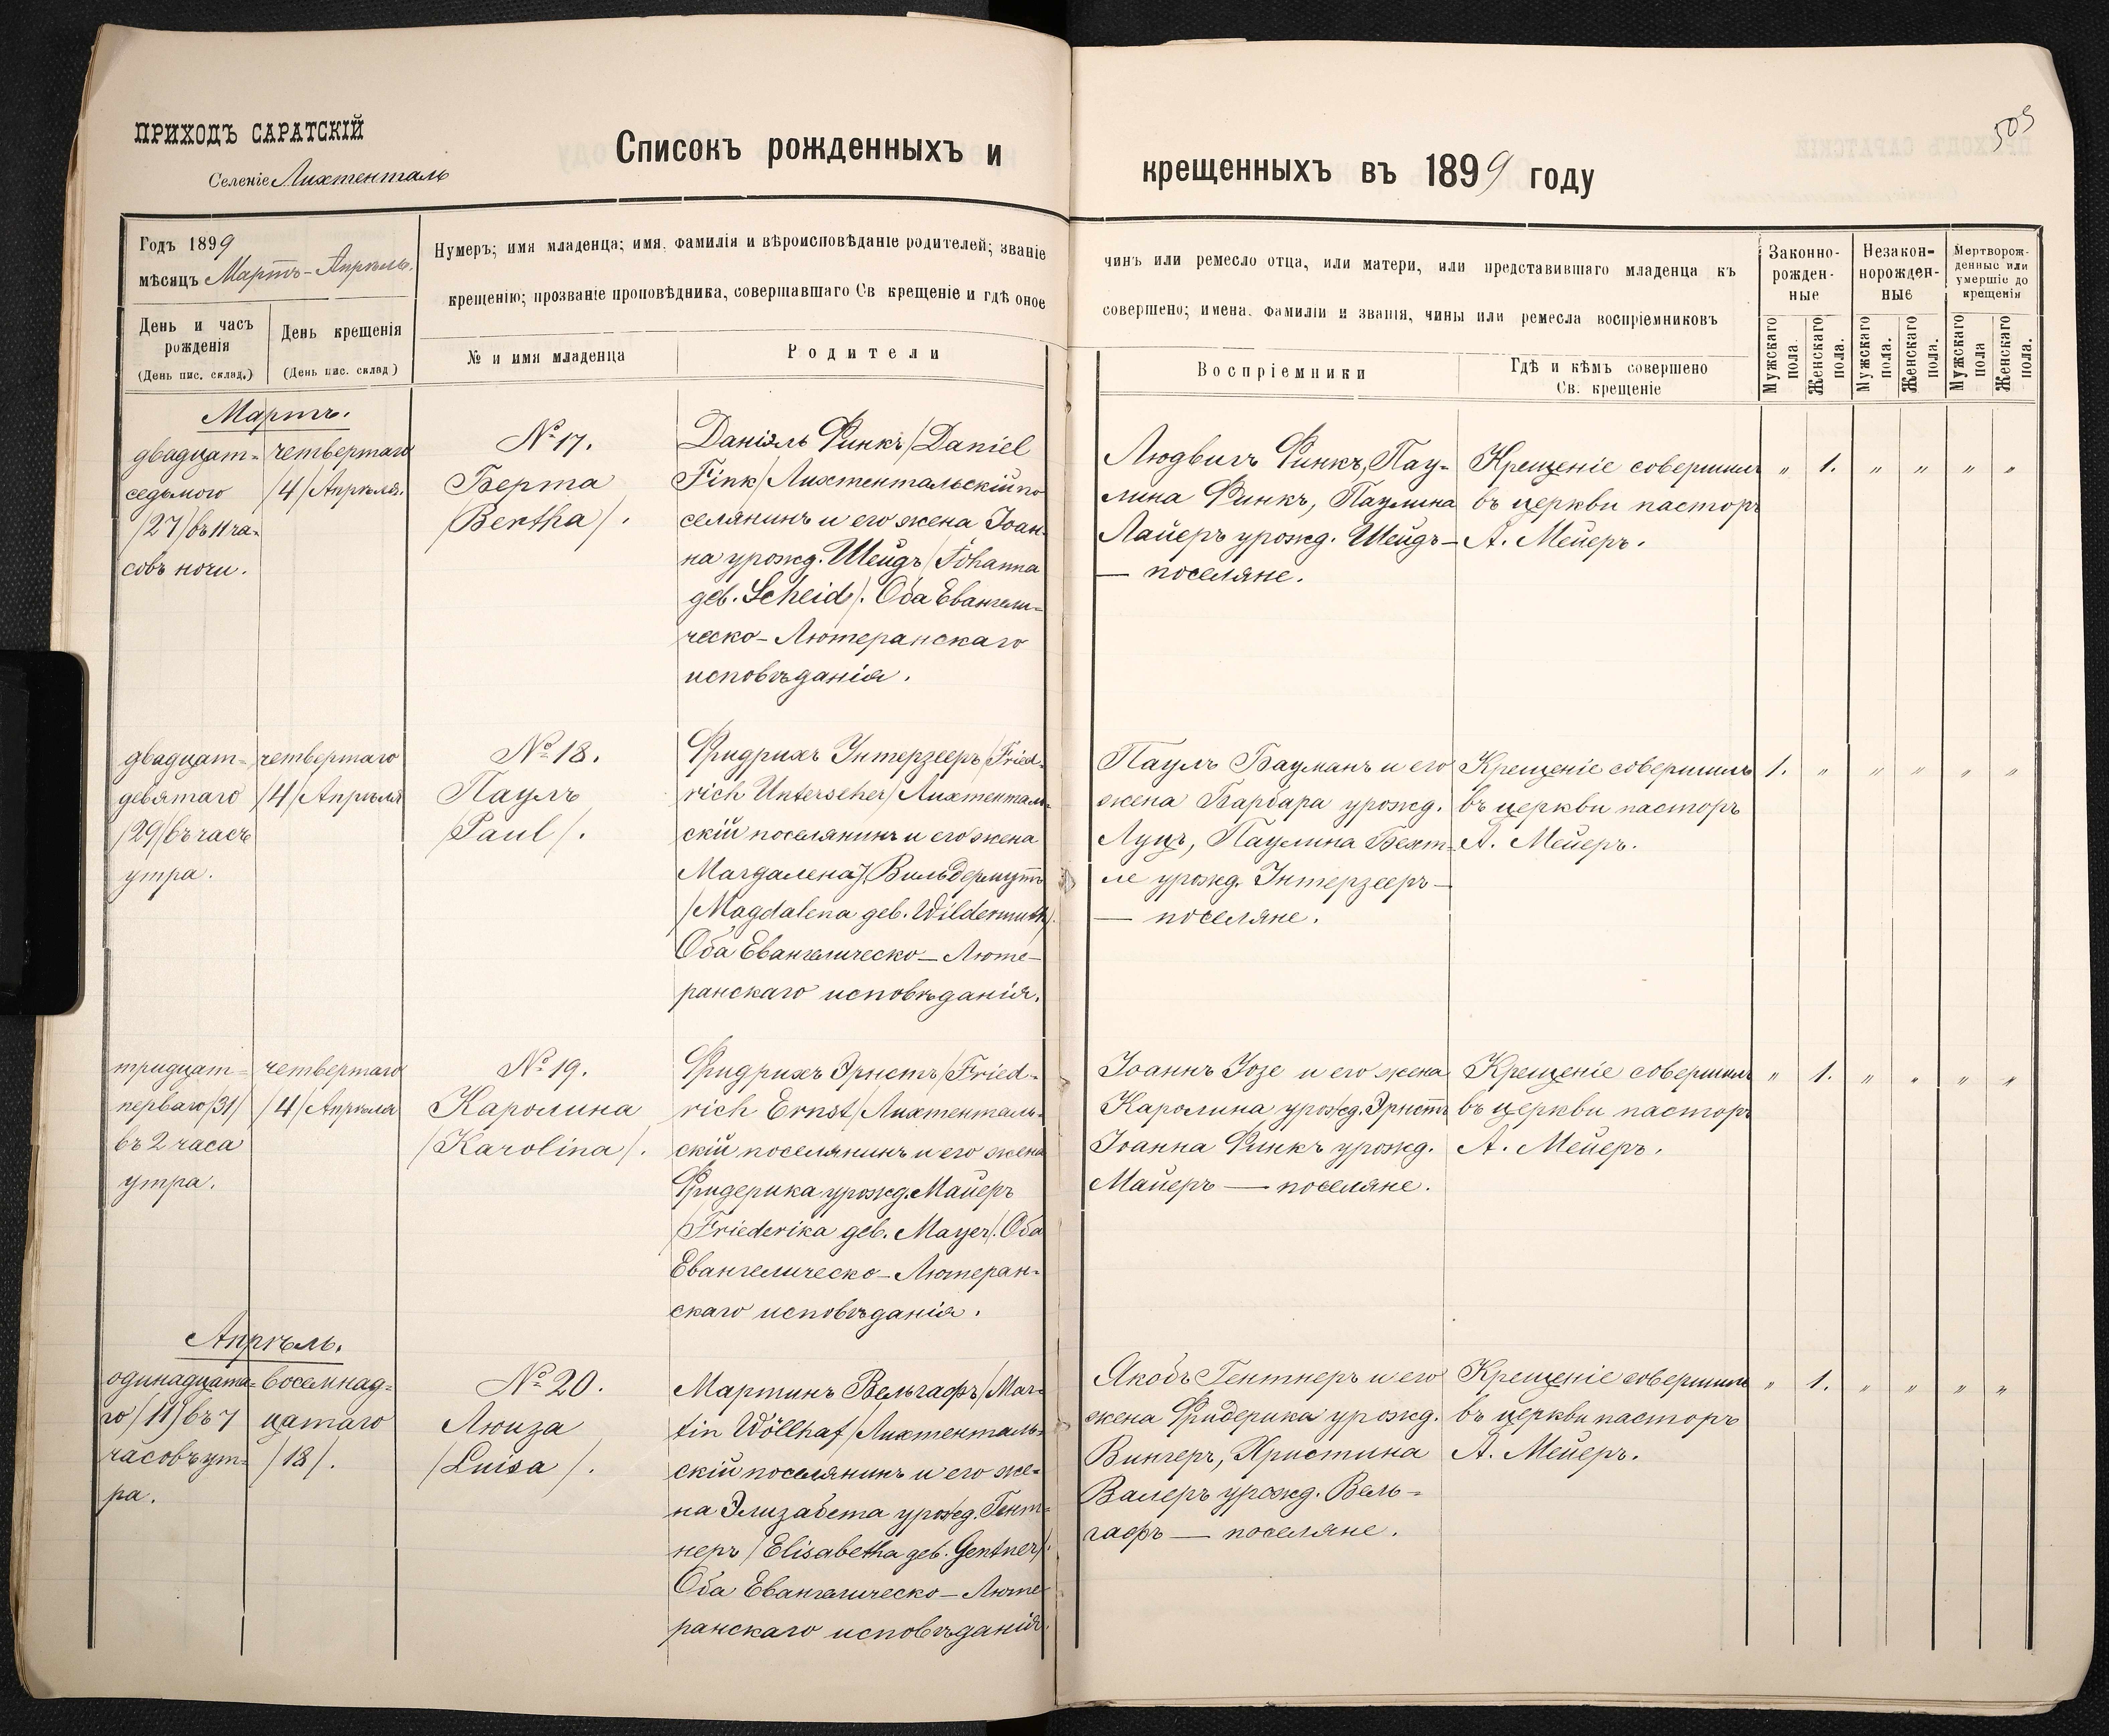 ПРИХОДЪ САРАТСКІЙ
Селеніе Лихтенталь
Списокъ рожденныхъ и
крещенныхъ въ 1899 году
505
Годъ 1899
мѣсяцъ Мартъ-Апрѣль.
День и часъ рожденія
(День пис. склад.)
День крещенія
(День пис. склад)
Нумеръ; имя младенца; имя, фамилія и вѣроисповѣданіе родителей; званіе
крещенію; прозваніе проповѣдника, совершавшаго Св крещеніе и гдѣ оное
№ и имя младенца
Родители
чинъ или ремесло отца, или матери, или представившаго младенца къ
совершено; имена, фамиліи и званія, чины или ремесла воспріемниковъ
Воспріемники
Гдѣ и кѣмъ совершено
Св. крещеніе
Законно-
рожден-
ные
Незакон-
норожден-
ные
Мертворож-
денные или
умершіе до
крещенія
Мужскаго пола.
Женскаго пола.
Мужскаго пола.
Женскаго пола.
Мужскаго пола
Женскаго пола.
Мартъ.
двадцат=
седьмого
/27/ въ 11 ча=
совъ ночи.
четвертаго
/4/ Апрѣля.
№ 17.
Берта
/Bertha/.
Даніэль Финкъ /Daniel
Fink/ Лихтентальскій по
селянинъ и его жена Іоан-
на урожд. Шейдъ /Johanna
geb. Scheid/. Оба Евангели=
ческо-Лютеранскаго
исповѣданія.
Людвигъ Финкъ, Пау=
лина Финкъ, Паулина
Лайеръ урожд. Шейдъ—
— поселяне.
Крещеніе совершилъ
въ церкви пасторъ
А. Мейеръ.
" 1. " " " "
двадцат=
девятаго
/29/ въ часъ
утра.
четвертаго
/4/ Апрѣля
№ 18.
Паулъ
/Paul/.
Фридрихъ Унтерзееръ /Fried=
rich Unterseher/ Лихтенталь=
скій поселянинъ и его жена
Магдалена у. Вильдермутъ
/Magdalena geb. Wildermuth/.
Оба Евангелическо-Люте-
ранскаго исповѣданія.
Паулъ Бауманъ и его
жена Барбара урожд.
Луцъ, Паулина Бехт=
ле урожд. Унтерзееръ—
— поселяне.
Крещеніе совершилъ
въ церкви пасторъ
А. Мейеръ.
1. " " " " "
тридцат=
перваго /31/
въ 2 часа
утра.
четвертаго
/4/ Апрѣля
№ 19.
Каролина
/Karolina/.
Фридрихъ Эрнстъ /Fried=
rich Ernst/ Лихтенталь=
скій поселянинъ и его жена
Фридерика урожд. Майеръ
/Friederika geb. Mayer/. Оба
Евангелическо-Лютеран=
скаго исповѣданія.
Іоаннъ Іозе и его жена
Каролина урожд. Эрнстъ
Іоанна Финкъ урожд.
Майеръ — поселяне.
Крещеніе совершилъ
въ церкви пасторъ
А. Мейеръ.
" 1. " " " "
Апрѣль.
одинадцата=
го /11/ въ 7
часовъ ут=
ра.
восемнад=
цатаго
/18/.
№ 20.
Люиза
/Luisa/.
Мартинъ Вельгафъ /Mar=
tin Wöllhaf/ Лихтенталь=
скій поселянинъ и его же=
на Элизабета урожд. Гент=
неръ /Elisabetha geb. Gentner/.
Оба Евангелическо-Люте-
ранскаго исповѣданія.
Якобъ Гентнеръ и его
жена Фридерика урожд.
Вингеръ, Христина
Валеръ урожд. Вель=
гафъ — поселяне.
Крещеніе совершилъ
въ церкви пасторъ
А. Мейеръ.
" 1. " " " "